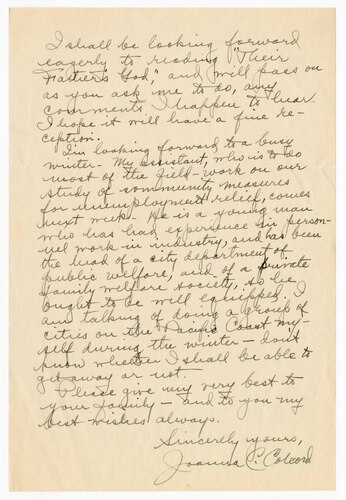 I shall be looking forward
eagerly to reading "Their
Father's God," and will pass on
as you ask me to do, any
comments I happen to hear.
I hope it will have a fine re-
ception.
I'm looking forward to a busy
winter - My assistant, who is to do
most of the field-work on our
study of community measures
for unemployment relief, comes
next week. He is a young man
who has had experience in person-
nel work in industry, and has been
the head of a city department of
public welfare, and of a private
family welfare society, so he
ought to be well equipped. I
am talking of doing a group of
cities on the Pacific Coast my-
self during the winter - don't
know whether I shall be able to
get away or not.
Please give my very best to
your family - and to you my
best wishes always.
Sincerely yours,
Joanna C. Colcord